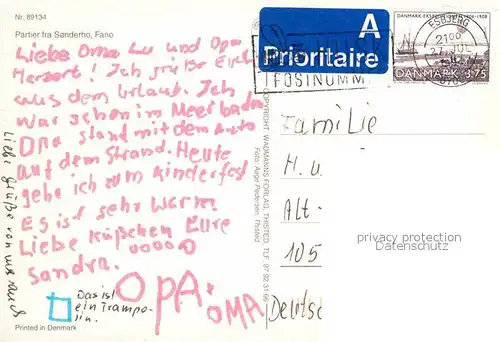 Nr. 89134
Partier fra Sønderho, Fanø
Liebe Oma Lu und Opa
Herbert! Ich grüße Euch
aus dem Urlaub. Ich
war schon im Meer baden
Opa stand mit dem Auto
auf dem Strand. Heute
gehe ich zum Kinderfest
Es ist sehr warm
Liebe Küßchen Eure
Sandra.
OPA.
OMA
Das ist
ein Trampo-
lin.
Liebe Grüße von uns auch
Printed in Denmark
COPYRIGHT WADMANNS FORLAG, THISTED, TLF. 97 92 31 66
Foto: Aage Pedersen, Thisted
A
Prioritaire
POSTNUMM
ESBJERG
27 JUL
DANMARK 3.75
Familie
H. u.
Alt-
105
Deutsc
privacy protection
Datenschutz